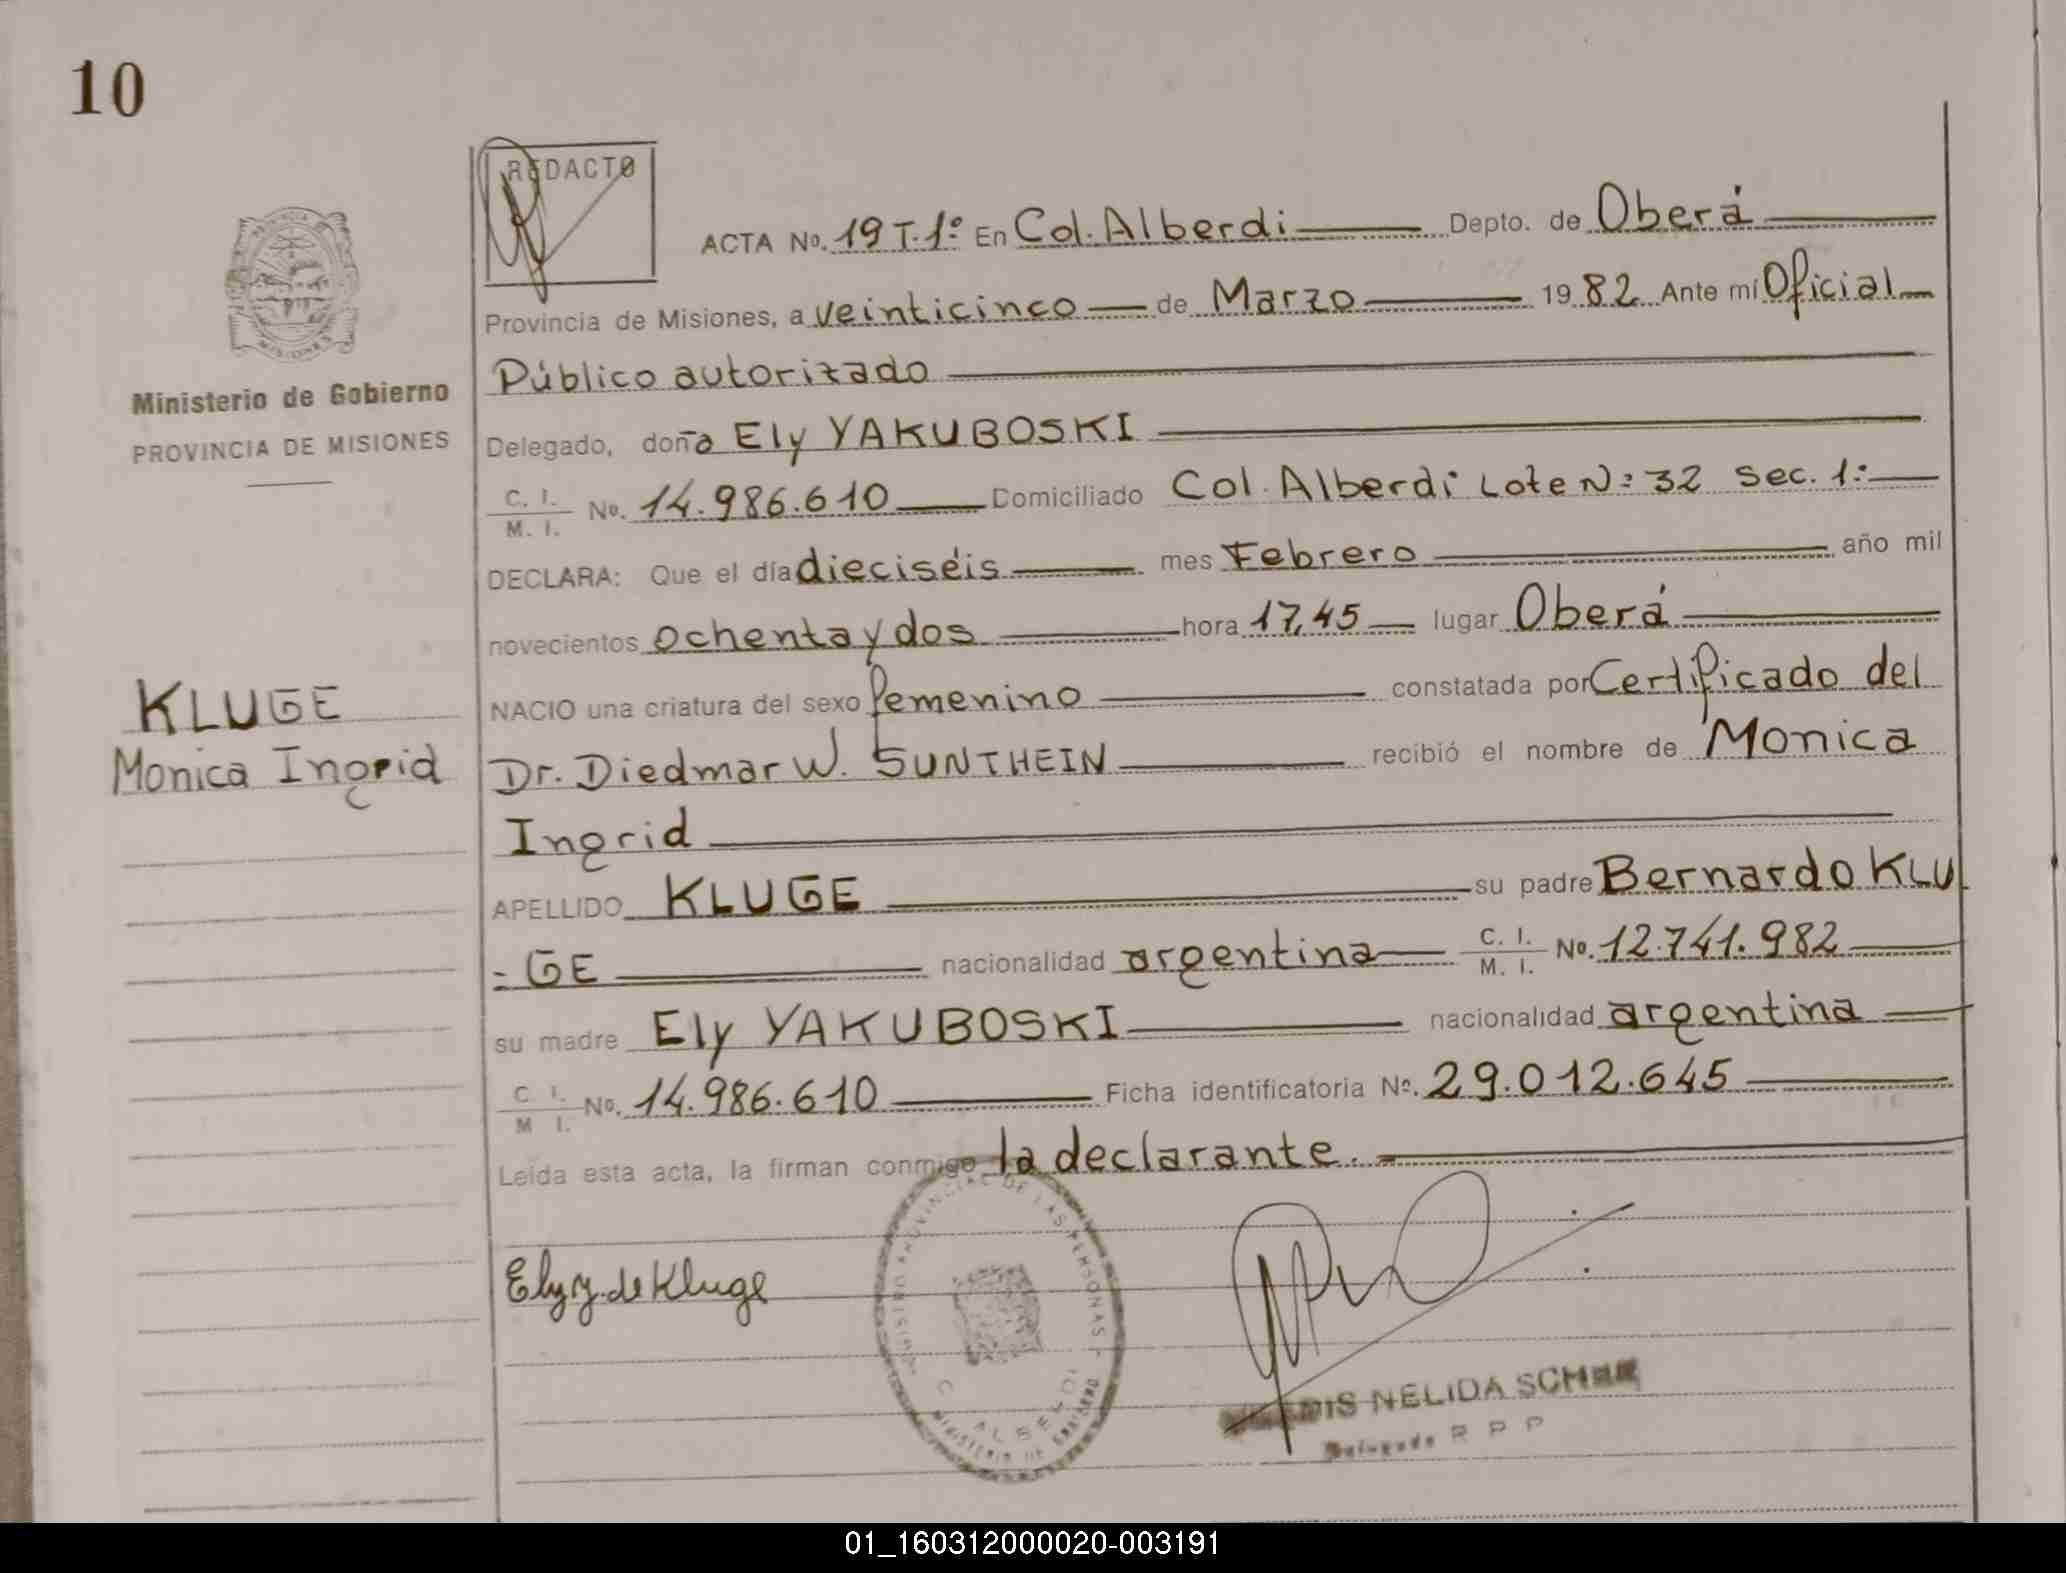 10
REDACTO
ACTA No. 19 T. 1º En Col. Alberdi Depto. de Oberá
Provincia de Misiones, a veinticinco de Marzo 1982 Ante mí Oficial
Público autorizado
Ministerio de Gobierno
PROVINCIA DE MISIONES
Delegado, doña Ely YAKUBOSKI
C. I. / M. I. No. 14.986.610 Domiciliado Col. Alberdi Lote Nº 32 Sec. 1ª
DECLARA: Que el día dieciséis mes Febrero año mil
novecientos ochenta y dos hora 17,45 lugar Oberá
KLUGE
Monica Ingrid
NACIO una criatura del sexo femenino constatada por Certificado del
Dr. Diedmar W. SUNTHEIN recibió el nombre de Monica
Ingrid
APELLIDO KLUGE su padre Bernardo KLU
=GE nacionalidad argentina C. I. / M. I. No. 12.741.982
su madre Ely YAKUBOSKI nacionalidad argentina
C. I. / M. I. No. 14.986.610 Ficha identificatoria Nº. 29.012.645
Leída esta acta, la firman conmigo la declarante.
Ely Y. de Kluge
PROVINCIAL DE LAS PERSONAS
MINISTERIO DE GOBIERNO
NELIDA
Delegada R P P
01_160312000020-003191